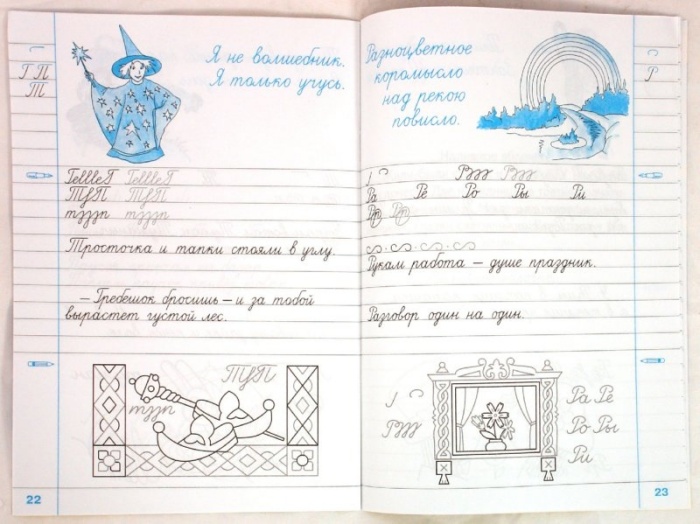 Г П
Т
Я не волшебник.
Я только учусь.
Тросточка и тапки стояли в углу.
– Гребешок бросишь – и за тобой
вырастет густой лес.
22
Р
Разноцветное
коромысло
над рекою
повисло.
Ра Рё Ро Ры Ри
Рукам работа – душе праздник.
Разговор один на один.
Ра Рё
Ро Ры
Ри
23